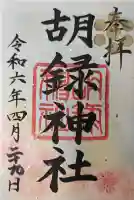 奉拝
胡録神社
令和六年四月二十九日